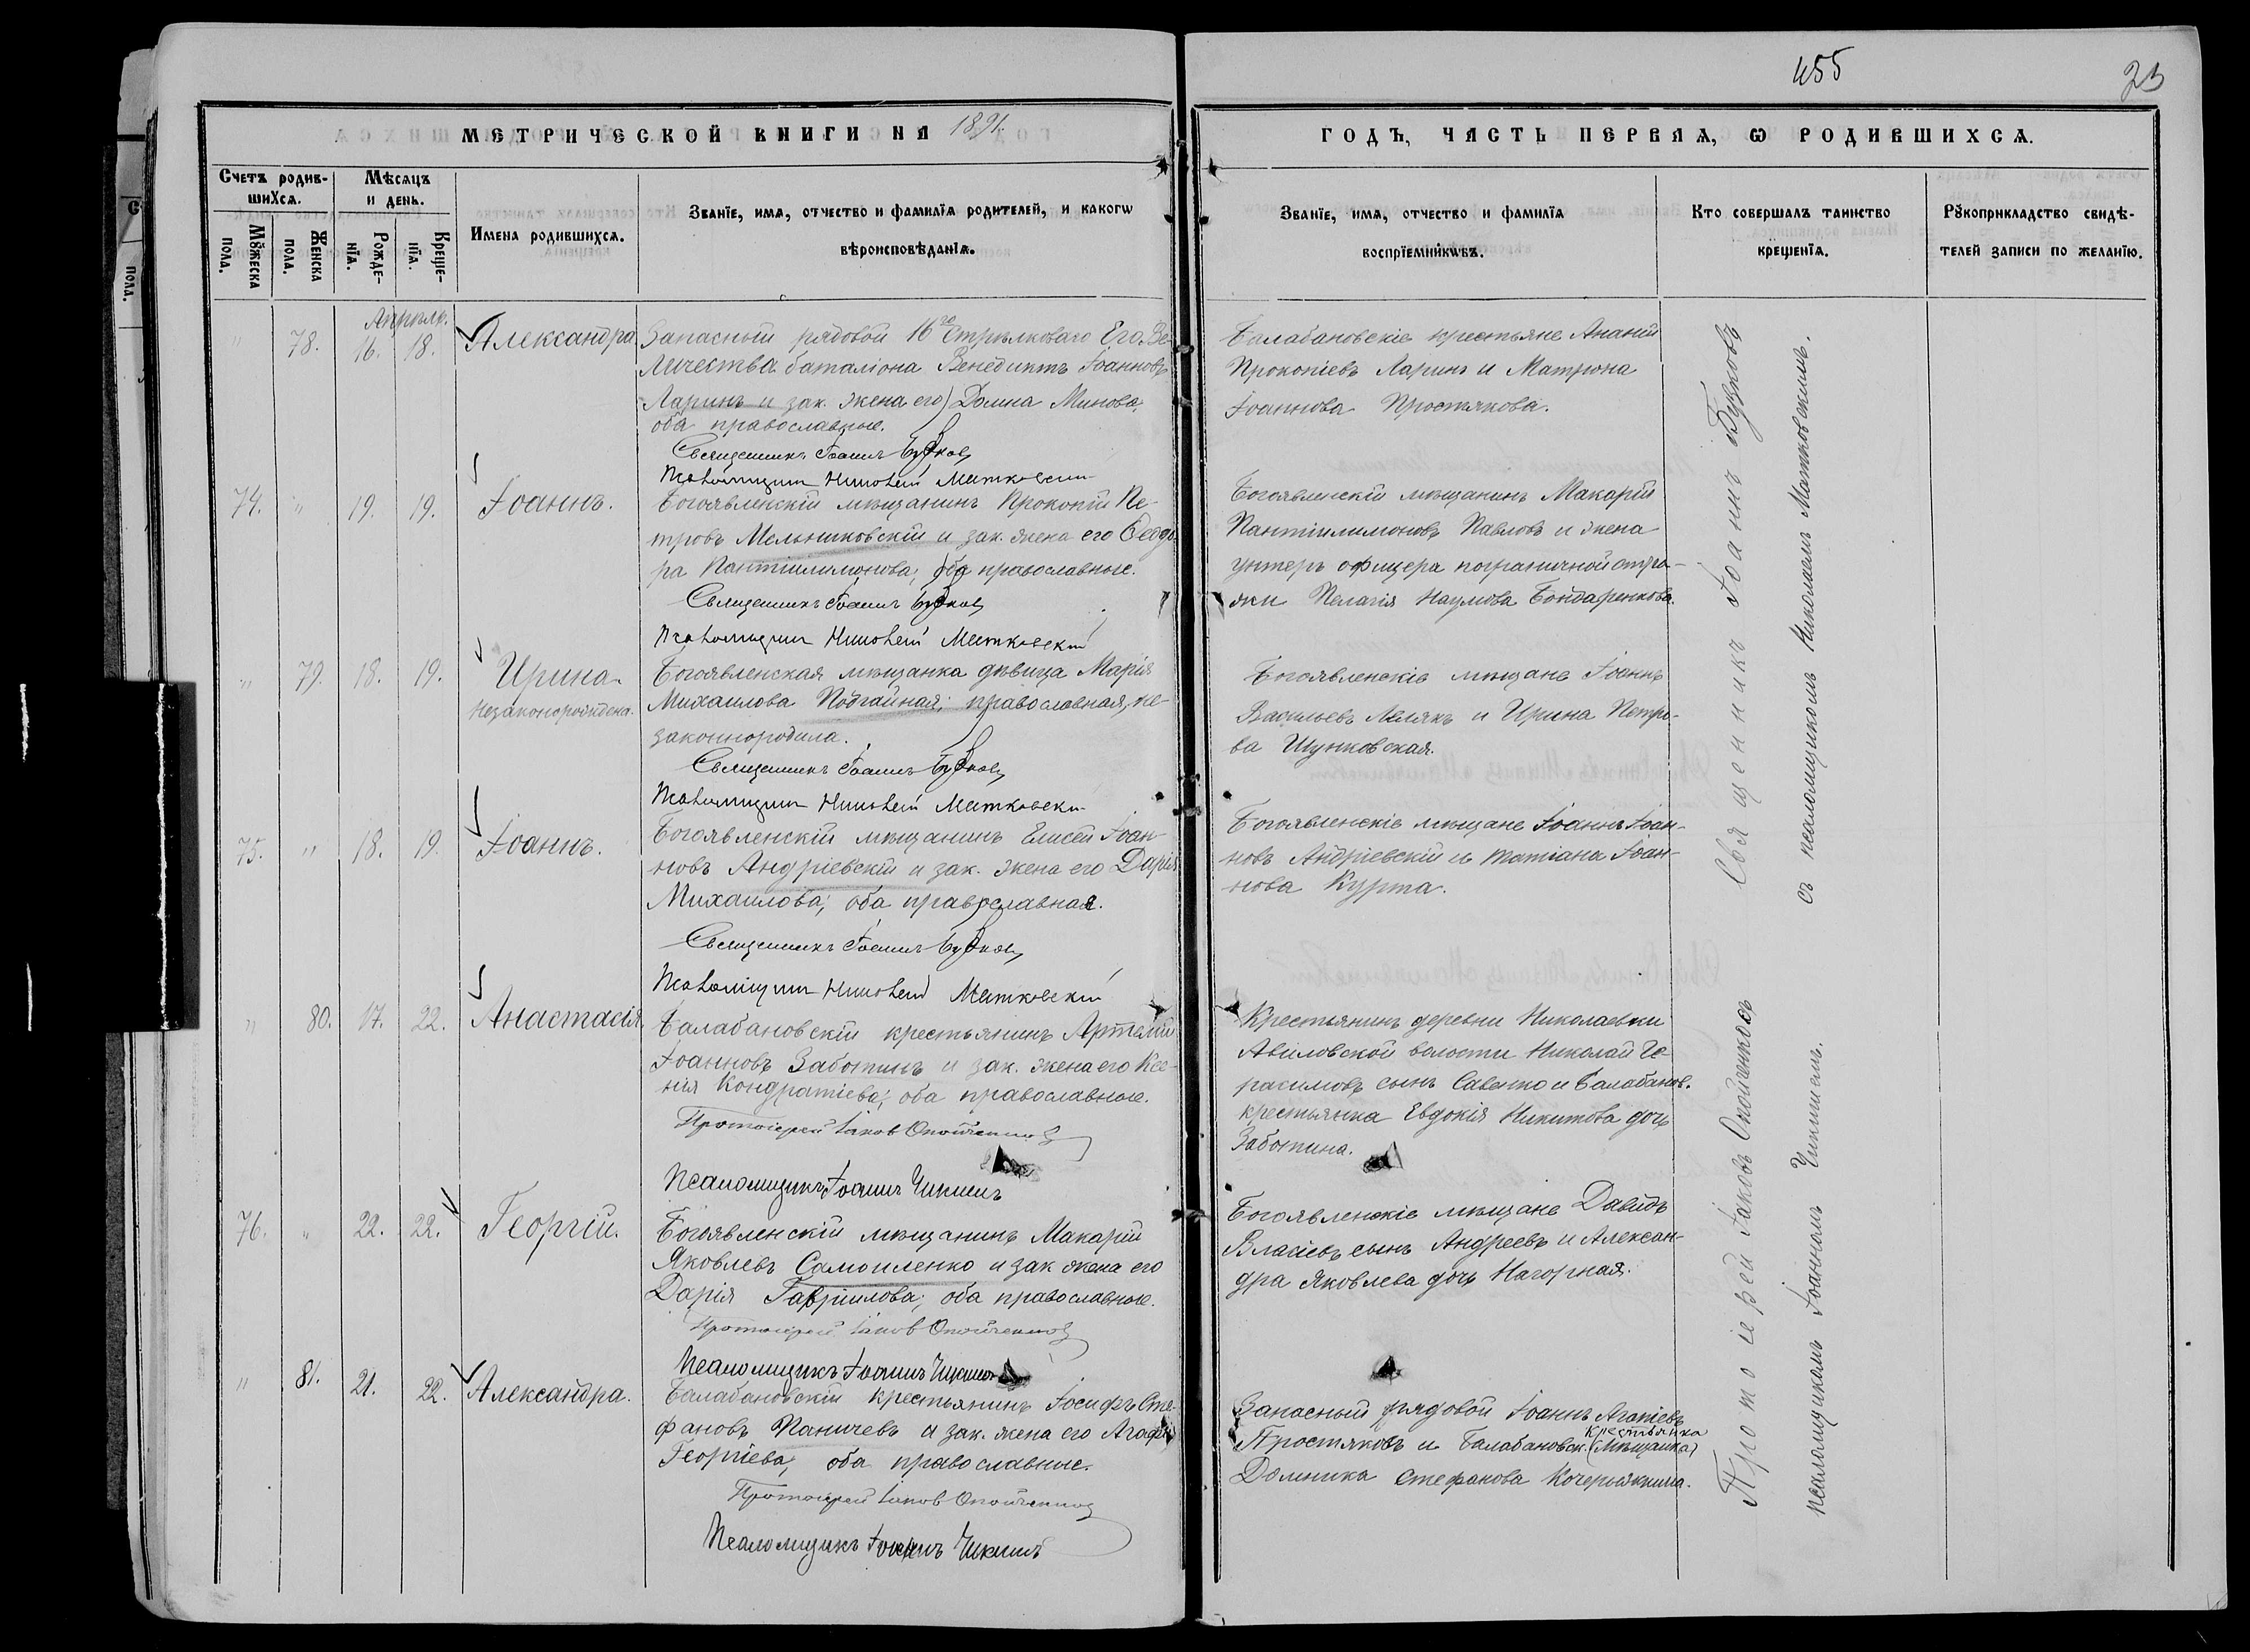 455
23
МЕТРИЧЕСКОЙ КНИГИ НА 1891
ГОДЪ, ЧАСТЬ ПЕРВАѦ, Ѡ РОДИВШИХСѦ.
Счетъ родив-
шихсѧ.
Мѣсѧцъ
и день.
Мꙋжеска
пола.
Женска
пола.
Рожде-
нїѧ.
Креще-
нїѧ.
Имена родившихсѧ.
Званїе, имѧ, отчество и фамилїѧ родителей, и какогѡ
вѣроисповѣданїѧ.
Званїе, имѧ, отчество и фамилїѧ
воспрїемникѡвъ.
Кто совершалъ таинство
крещенїѧ.
Рꙋкоприкладство свидѣ-
телей записи по желанїю.
Апрѣль.
" 78. 16. 18. Александра
Запасный рядовой 16го Стрѣлковаго Его Ве-
личества баталіона Венедиктъ Іоанновъ
Ларинъ и зак. жена его Домна Минова,
оба православные.
Священникъ Іоаннъ Бужковъ
Псаломщикъ Николай Матковскій
Балабановскіе крестьяне Ананій
Прокопіевъ Ларинъ и Матрона
Іоаннова Простякова.
74. " 19. 19. Іоаннъ.
Богоявленскій мѣщанинъ Прокопій Пе-
тровъ Мельниковскій и зак. жена его Ѳеодо-
ра Пантіилимонова; оба православные.
Священникъ Іоаннъ
Псаломщикъ Николай Матковскій
Богоявленскій мѣщанинъ Макарій
Пантіилимоновъ Павловъ и жена
унтеръ офицера пограничной стра-
жи Пелагія Наумова Бондаренкова.
" 79. 18. 19. Ирина
незаконорождена.
Богоявленская мѣщанка дѣвица Марія
Михаилова Подгайная; православная, не-
законнородила.
Священникъ Іоаннъ
Псаломщикъ Николай Матковскій
Богоявленскіе мѣщане Іоаннъ
Васильевъ Лелякъ и Ирина Петро-
ва Шунковская.
75. " 18. 19. Іоаннъ.
Богоявленскій мѣщанинъ Елисей Іоан-
новъ Андріевскій и зак. жена его Дарія
Михаилова; оба православная.
Священникъ Іоаннъ
Псаломщикъ Николай Матковскій
Богоявленскіе мѣщане Іоаннъ Іоан-
новъ Андріевскій и Татіана Іоан-
нова Курта.
" 80. 17. 22. Анастасія
Балабановскій крестьянинъ Артемій
Іоанновъ Заботинъ и зак. жена его Ксе-
нія Кондратіева; оба православные.
Протоіерей Іаковъ
Псаломщикъ Іоаннъ Чикишъ
Крестьянинъ деревни Николаевки
Авиловской волости Николай Ге-
расимовъ сынъ Савенко и Балабанов.
крестьянка Евдокія Никитова дочь
Заботина.
76. " 22. 22. Георгій.
Богоявленскій мѣщанинъ Макарій
Яковлевъ Самоиленко и зак жена его
Дарія Гавріилова; оба православные.
Протоіерей Іаковъ
Псаломщикъ Іоаннъ
Богоявленскіе мѣщане Давидъ
Власіевъ сынъ Андреевъ и Алексан-
дра Яковлева дочь Нагорная.
" 81. 21. 22. Александра.
Балабановскій крестьянинъ Іосифъ Сте-
фановъ Паничевъ и зак. жена его Агафія
Георгіева; оба православные.
Протоіерей Іаковъ
Псаломщикъ Іоаннъ Чикишъ
Запасный рядовой Іоаннъ Агапіевъ
крестьянка
Простяковъ и Балабановск. (мѣщанка)
Домника Стефанова
Священникъ Іоаннъ
съ псаломщикомъ Николаемъ Матковскимъ.
Протоіерей Іаковъ
псаломщикомъ Іоанномъ